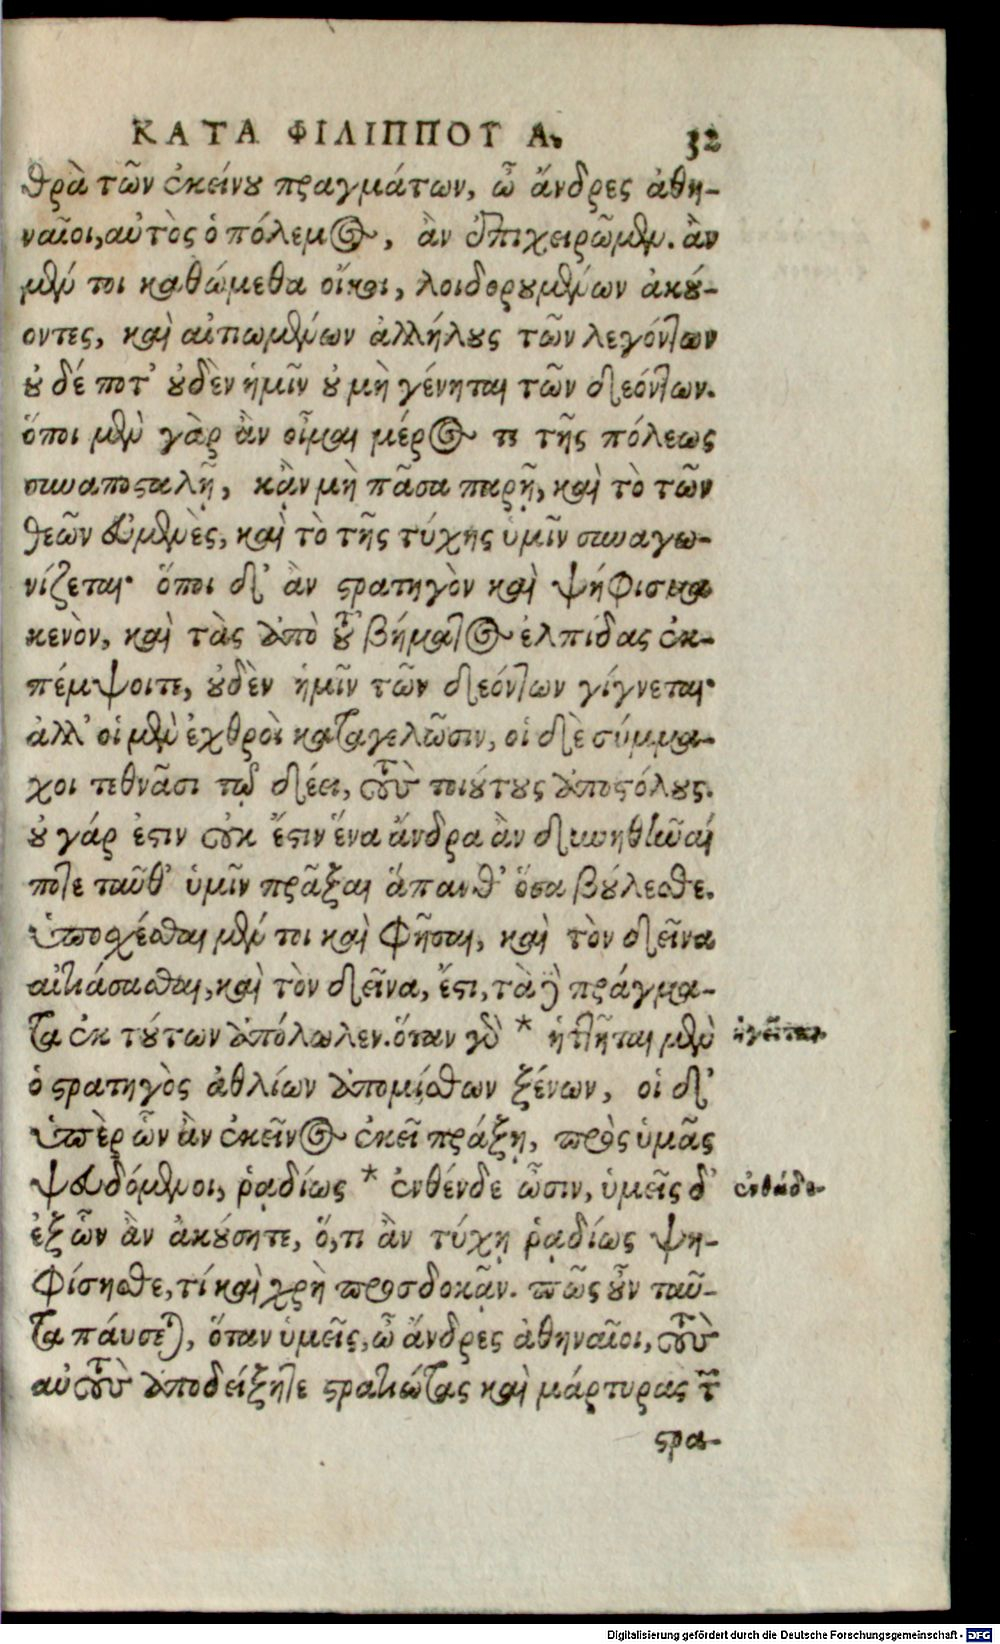 ΚΑΤΑ ΦΙΛΙΠΠΟΥ Α. 32
θρὰ τῶν ἐκείνου πραγμάτων, ὦ ἄνδρες ἀθη-
ναῖοι, αὐτὸς ὁ πόλεμος, ἂν ἐπιχειρῶμεν. ἂν
μέν τοι καθώμεθα οἴκοι, λοιδορουμένων ἀκού-
οντες, καὶ αἰτιωμένων ἀλλήλους τῶν λεγόντων
οὐ δέ ποτ' οὐδὲν ἡμῖν οὐ μὴ γένηται τῶν δεόντων.
ὅποι μὲν γὰρ ἂν οἶμαι μέρος τι τῆς πόλεως
συναποσταλῇ, κἂν μὴ πᾶσα παρῇ, καὶ τὸ τῶν
θεῶν εὐμενὲς, καὶ τὸ τῆς τύχης ὑμῖν συναγω-
νίζεται· ὅποι δ' ἂν στρατηγὸν καὶ ψήφισμα
κενὸν, καὶ τὰς ἀπὸ τοῦ βήματος ἐλπίδας ἐκ-
πέμψοιτε, οὐδὲν ἡμῖν τῶν δεόντων γίγνεται·
ἀλλ' οἱ μὲν ἐχθροὶ καταγελῶσιν, οἱ δὲ σύμμα-
χοι τεθνᾶσι τῷ δέει, τοὺς τοιούτους ἀποστόλους.
οὐ γάρ ἐστιν οὐκ ἔστιν ἕνα ἄνδρα ἂν δυνηθῆναί
ποτε ταῦθ' ὑμῖν πρᾶξαι ἅπανθ' ὅσα βούλεσθε.
ὑποσχέσθαι μέν τοι καὶ φῆσαι, καὶ τὸν δεῖνα
αἰτιάσασθαι, καὶ τὸν δεῖνα, ἔστι, τὰ δὲ πράγμα-
τα ἐκ τούτων ἀπόλωλεν. ὅταν γὰρ * ἡττῆται μὲν ἡγεῖται
ὁ στρατηγὸς ἀθλίων ἀπομίσθων ξένων, οἱ δ'
ὑπὲρ ὧν ἂν ἐκεῖνος ἐκεῖ πράξῃ, πρὸς ὑμᾶς
ψευδόμενοι, ῥᾳδίως * ἐνθένδε ὦσιν, ὑμεῖς δ' ἐνθάδε
ἐξ ὧν ἂν ἀκούσητε, ὅ,τι ἂν τύχῃ ῥᾳδίως ψη-
φίσησθε, τί καὶ χρὴ προσδοκᾷν. πῶς οὖν ταῦ-
τα παύσεται, ὅταν ὑμεῖς, ὦ ἄνδρες ἀθηναῖοι, τοὺς
αὐτοὺς ἀποδείξητε στρατιώτας καὶ μάρτυρας τῶν
στρα-
Digitalisierung gefördert durch die Deutsche Forschungsgemeinschaft - DFG